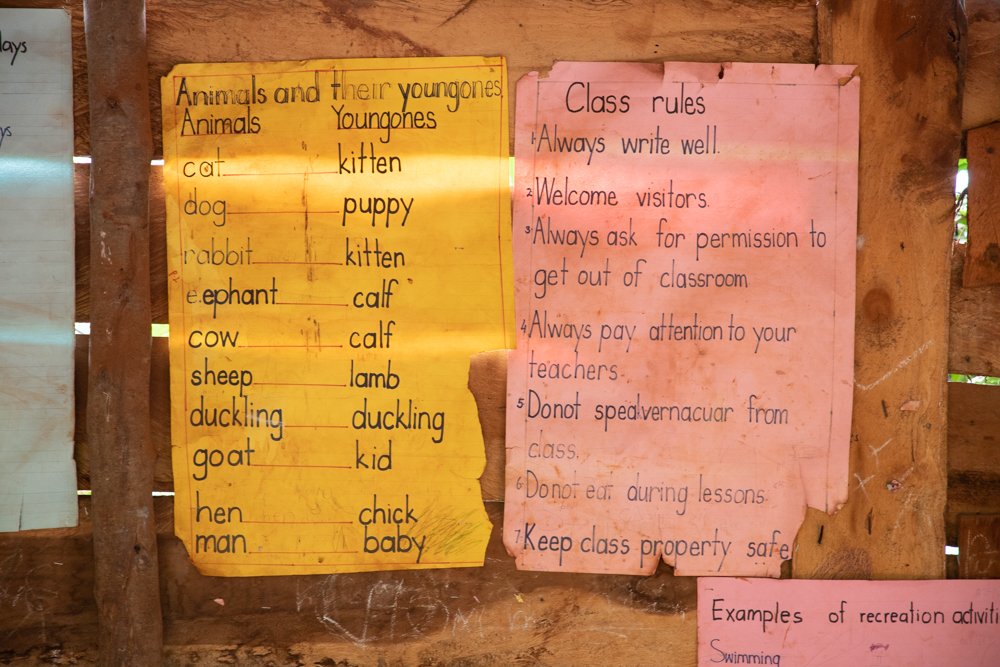 lays
ys
Animals and their youngones
Animals Youngones
cat kitten
dog puppy
rabbit kitten
e.ephant calf
cow calf
sheep lamb
duckling duckling
goat kid
hen chick
man baby
Class rules
1. Always write well.
2. Welcome visitors.
3. Always ask for permission to
get out of classroom
4. Always pay attention to your
teachers.
5. Donot speak vernacuar from
class.
6. Donot eat during lessons.
7. Keep class property safe
Examples of recreation activiti
Swimming